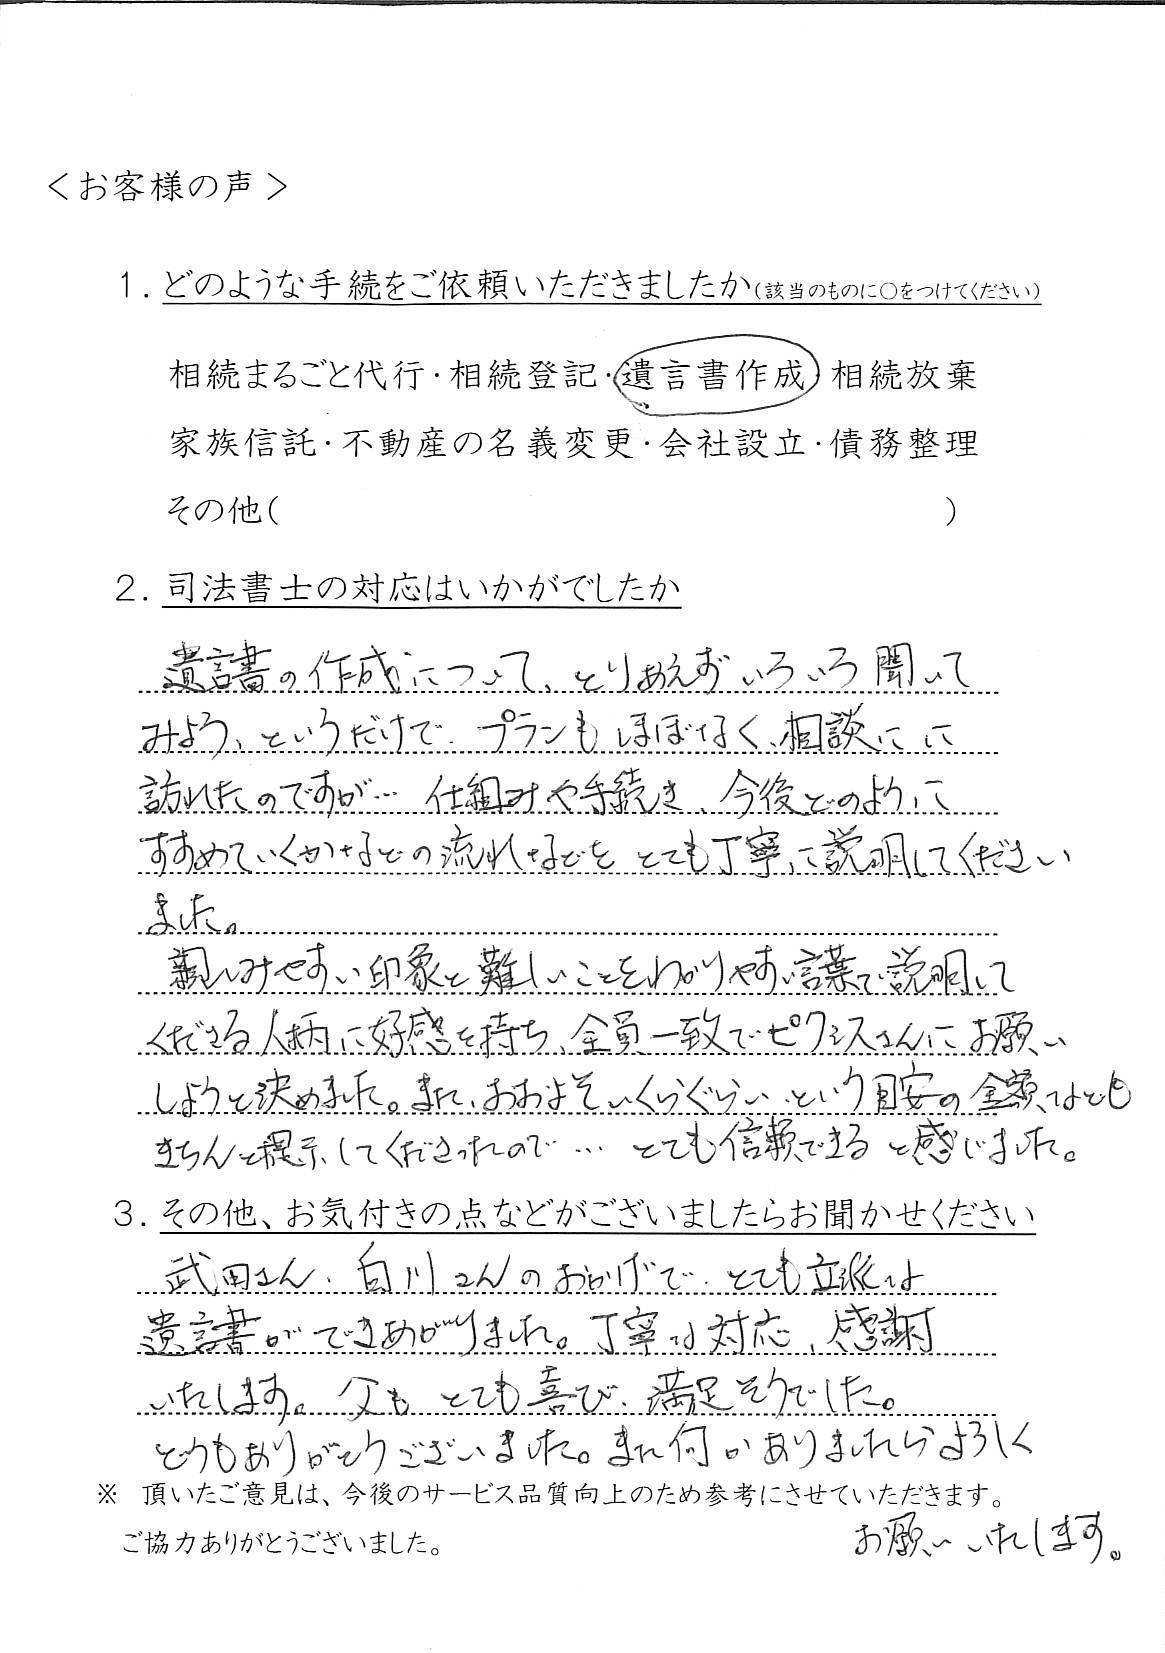 ＜お客様の声＞
1. どのような手続をご依頼いただきましたか(該当のものに○をつけてください)
相続まるごと代行・相続登記・遺言書作成 相続放棄
家族信託・不動産の名義変更・会社設立・債務整理
その他(　　　　　　　　　　)
2. 司法書士の対応はいかがでしたか
遺言書の作成について、とりあえず いろいろ聞いて
みよう、というだけで、プランも ほぼなく、相談に に
訪れたのですが… 仕組みや手続き、今後どのように
すすめていくかなどの流れなどを とても丁寧に説明してください
ました。
親しみやすい印象と難しいことをわかりやすい言葉で説明して
くださる人柄に好感を持ち、全員一致でピクシスさんにお願い
しようと決めました。また、おおよそいくらぐらい、という目安の金額なども
きちんと提示してくださったので… とても信頼できると感じました。
3. その他、お気付きの点などがございましたらお聞かせください
武田さん、白川さんのおかげで、とても立派な
遺言書ができあがりました。丁寧な対応、感謝
いたします。父も とても喜び、満足そうでした。
どうもありがとうございました。また何かありましたらよろしく
お願いいたします。
※ 頂いたご意見は、今後のサービス品質向上のため参考にさせていただきます。
ご協力ありがとうございました。